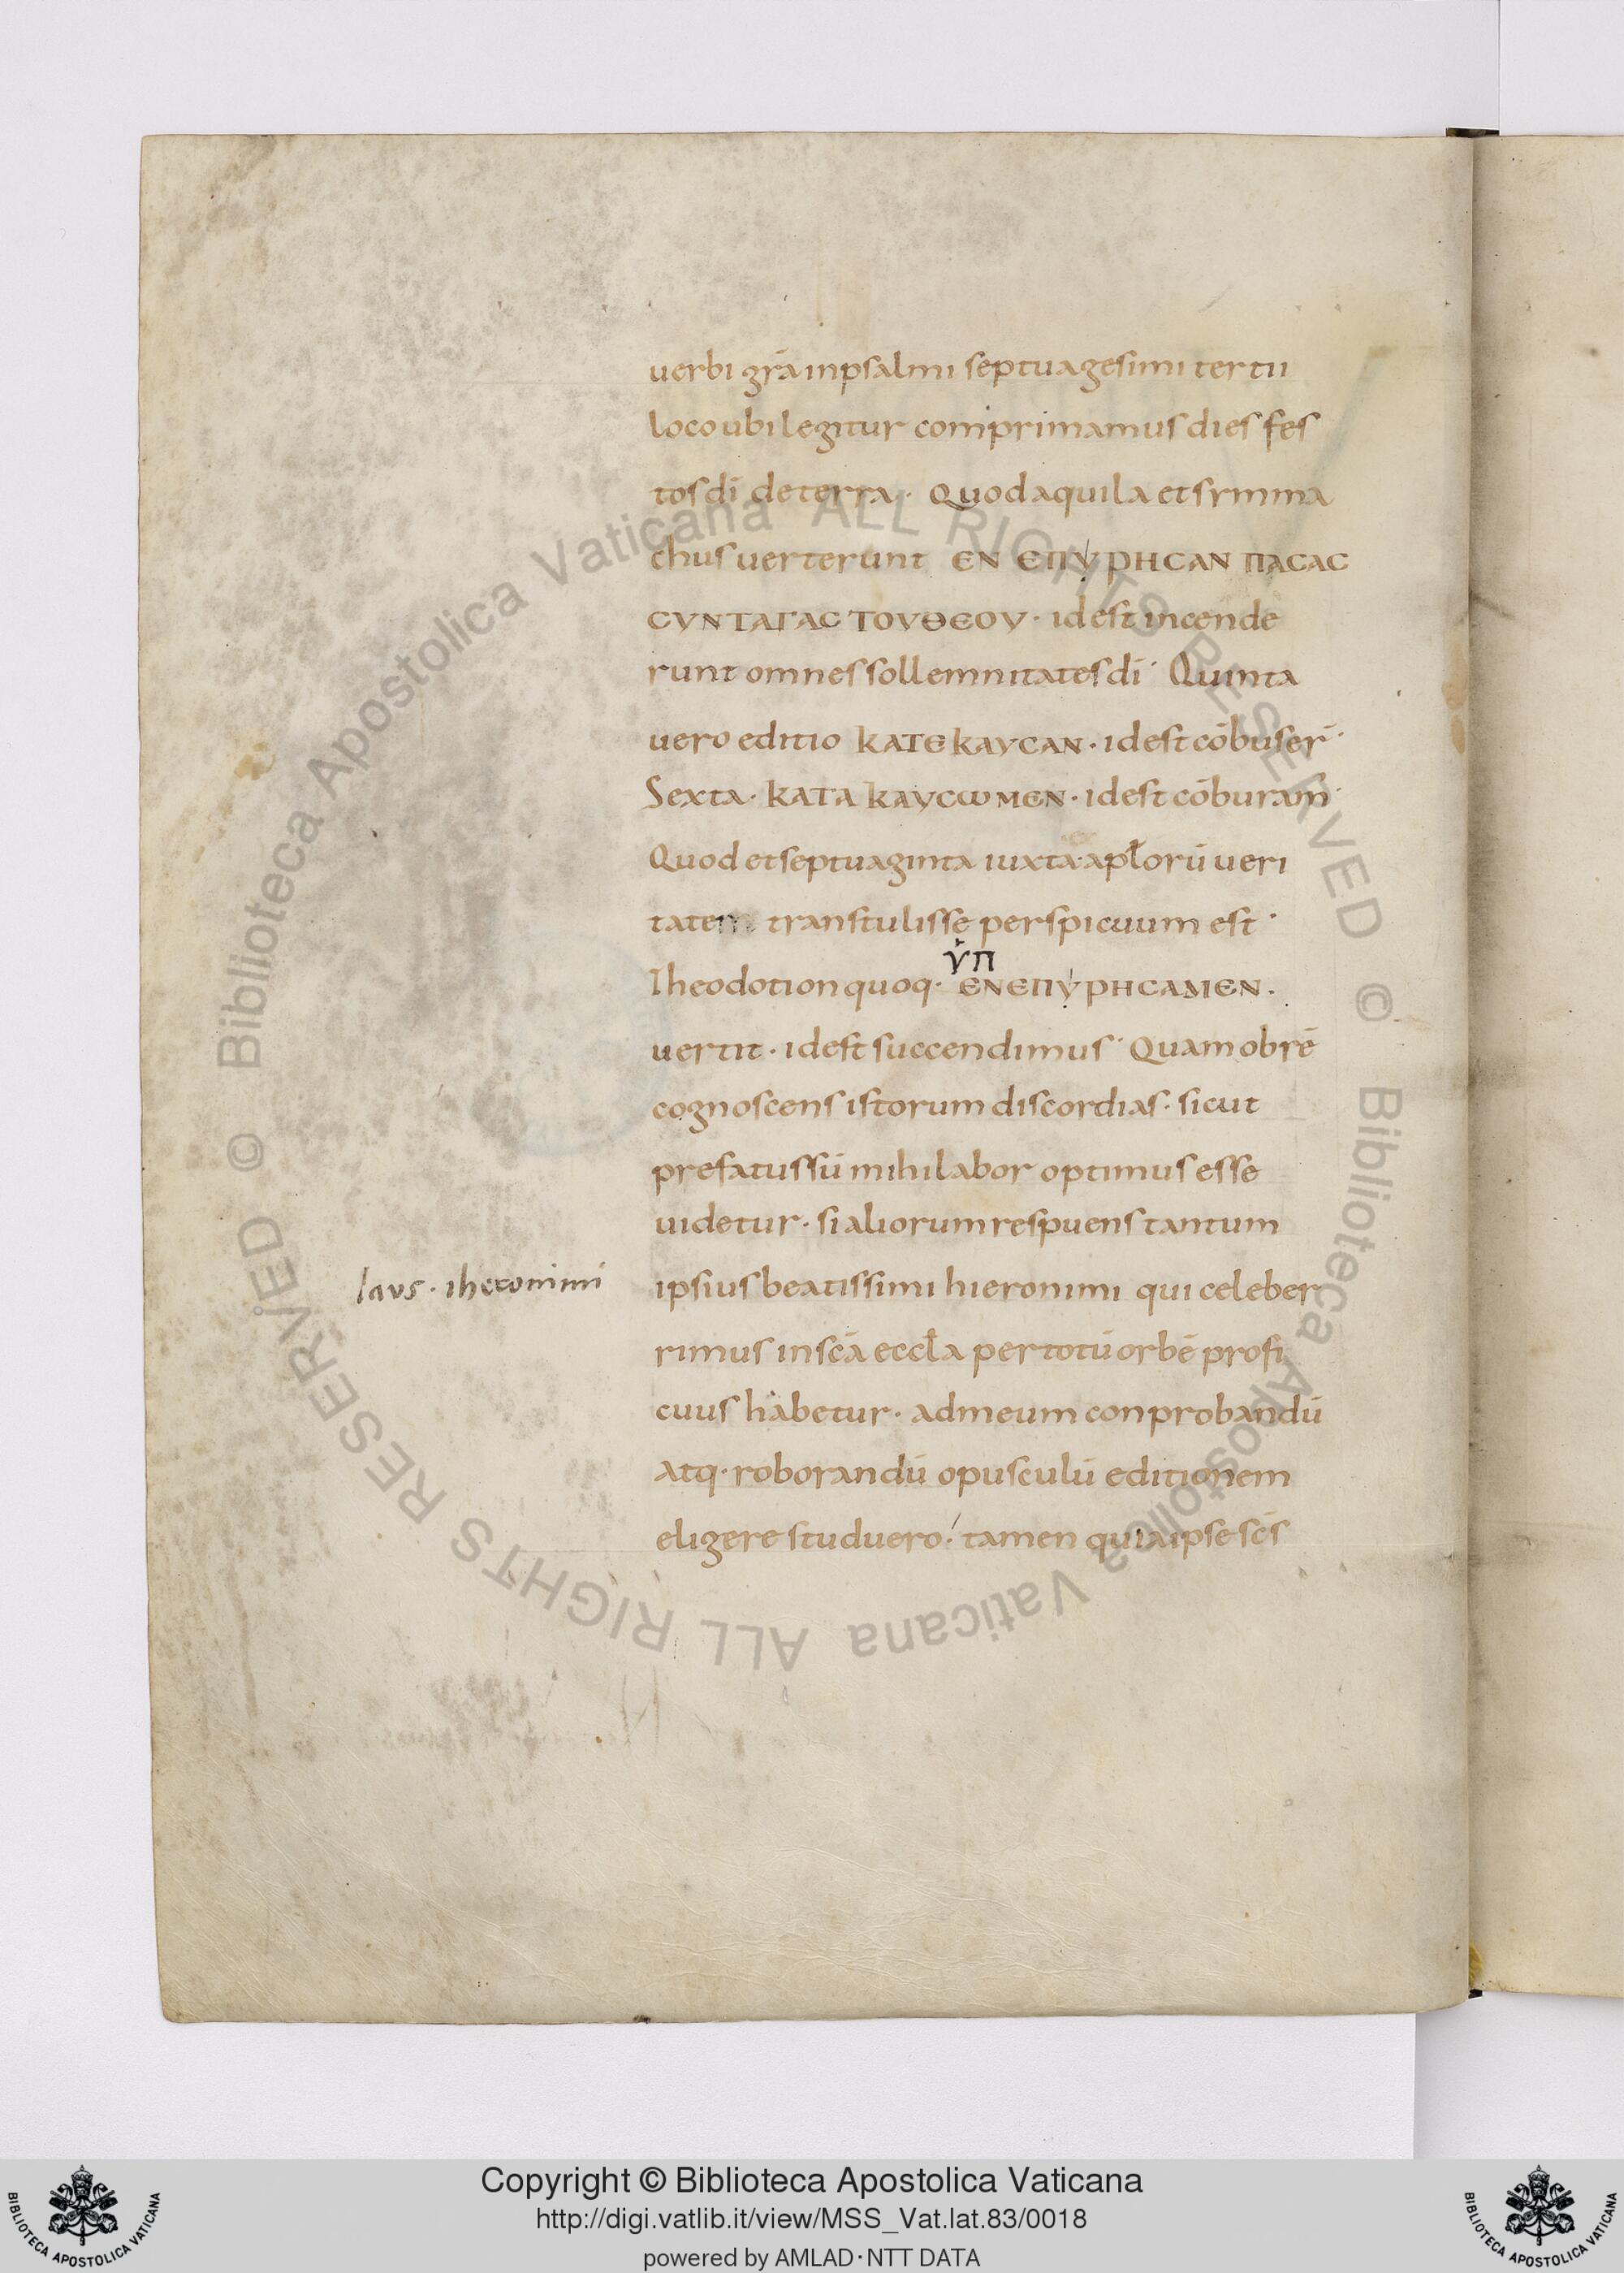 uerbi grā inpsalmi septuagesimi tertii
loco ubi legitur comprimamus dies fes
tos dī de terra · Quod aquila et symma
chus uerterunt ЄΝ ЄΠΥΡΗCΑΝ ΠΑCΑC
CΥΝΤΑΓΑC ΤΟΥ ΘЄΟΥ · id est incende
runt omnes sollemnitates dī · Quinta
uero editio ΚΑΤЄΚΑΥCΑΝ · id est cōbuser̄ ·
Sexta · ΚΑΤΑ ΚΑΥCωΜЄΝ · id est cōburam̄ ·
Quod et septuaginta iuxta apłorū ueri
tatem transtulisse perspicuum est ·
ΥΠ
Theodotion quoq · ЄΝЄΠΥΡΗCΑΜЄΝ ·
uertit · id est succendimus · Quam ob rē
cognoscens istorum discordias · sicut
prefatus sū mihi labor optimus esse
uidetur · si aliorum respuens tantum
laus · iheronimi
ipsius beatissimi hieronimi qui celeber
rimus in scā eccła per totū orbē profi
cuus habetur · ad meum conprobandū
Atq · roborandū opusculū editionem
eligere studuero · tamen quia ipse scs̄
Copyright © Biblioteca Apostolica Vaticana
http://digi.vatlib.it/view/MSS_Vat.lat.83/0018
powered by AMLAD·NTT DATA
BIBLIOTECA APOSTOLICA VATICANA
BIBLIOTECA APOSTOLICA VATICANA
© Biblioteca Apostolica Vaticana ALL RIGHTS RESERVED © Biblioteca Apostolica Vaticana ALL RIGHTS RESERVED